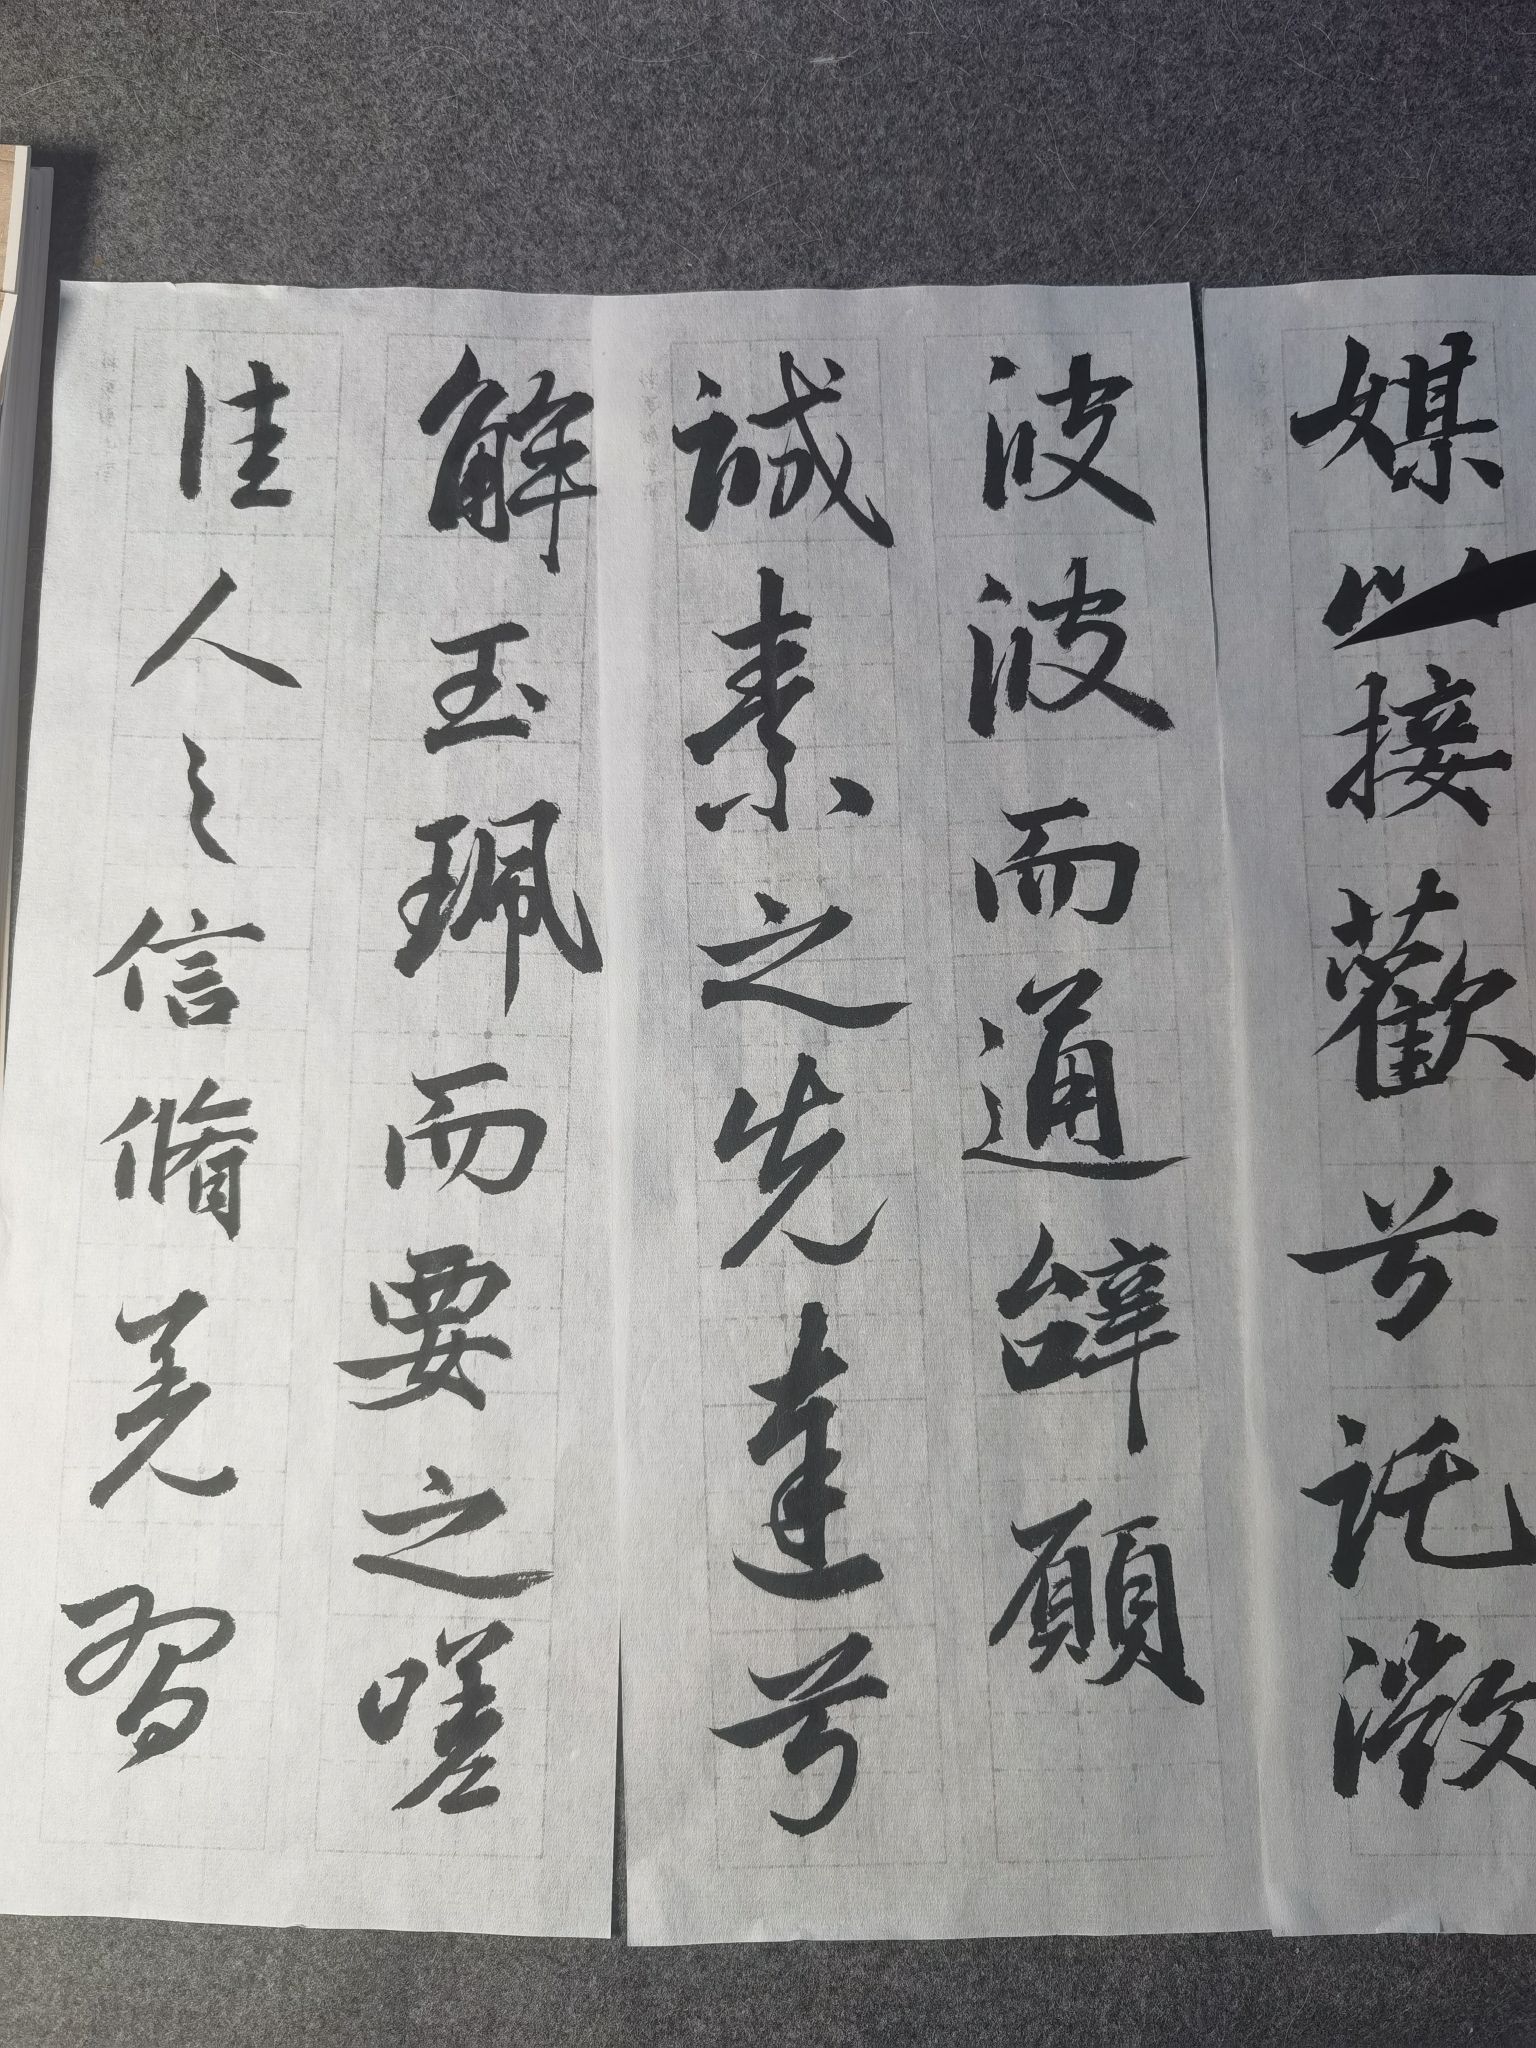 媒以接歡兮託微
波波而通辝願
誠素之先達兮
解玉珮而要之嗟
佳人之信脩羌習